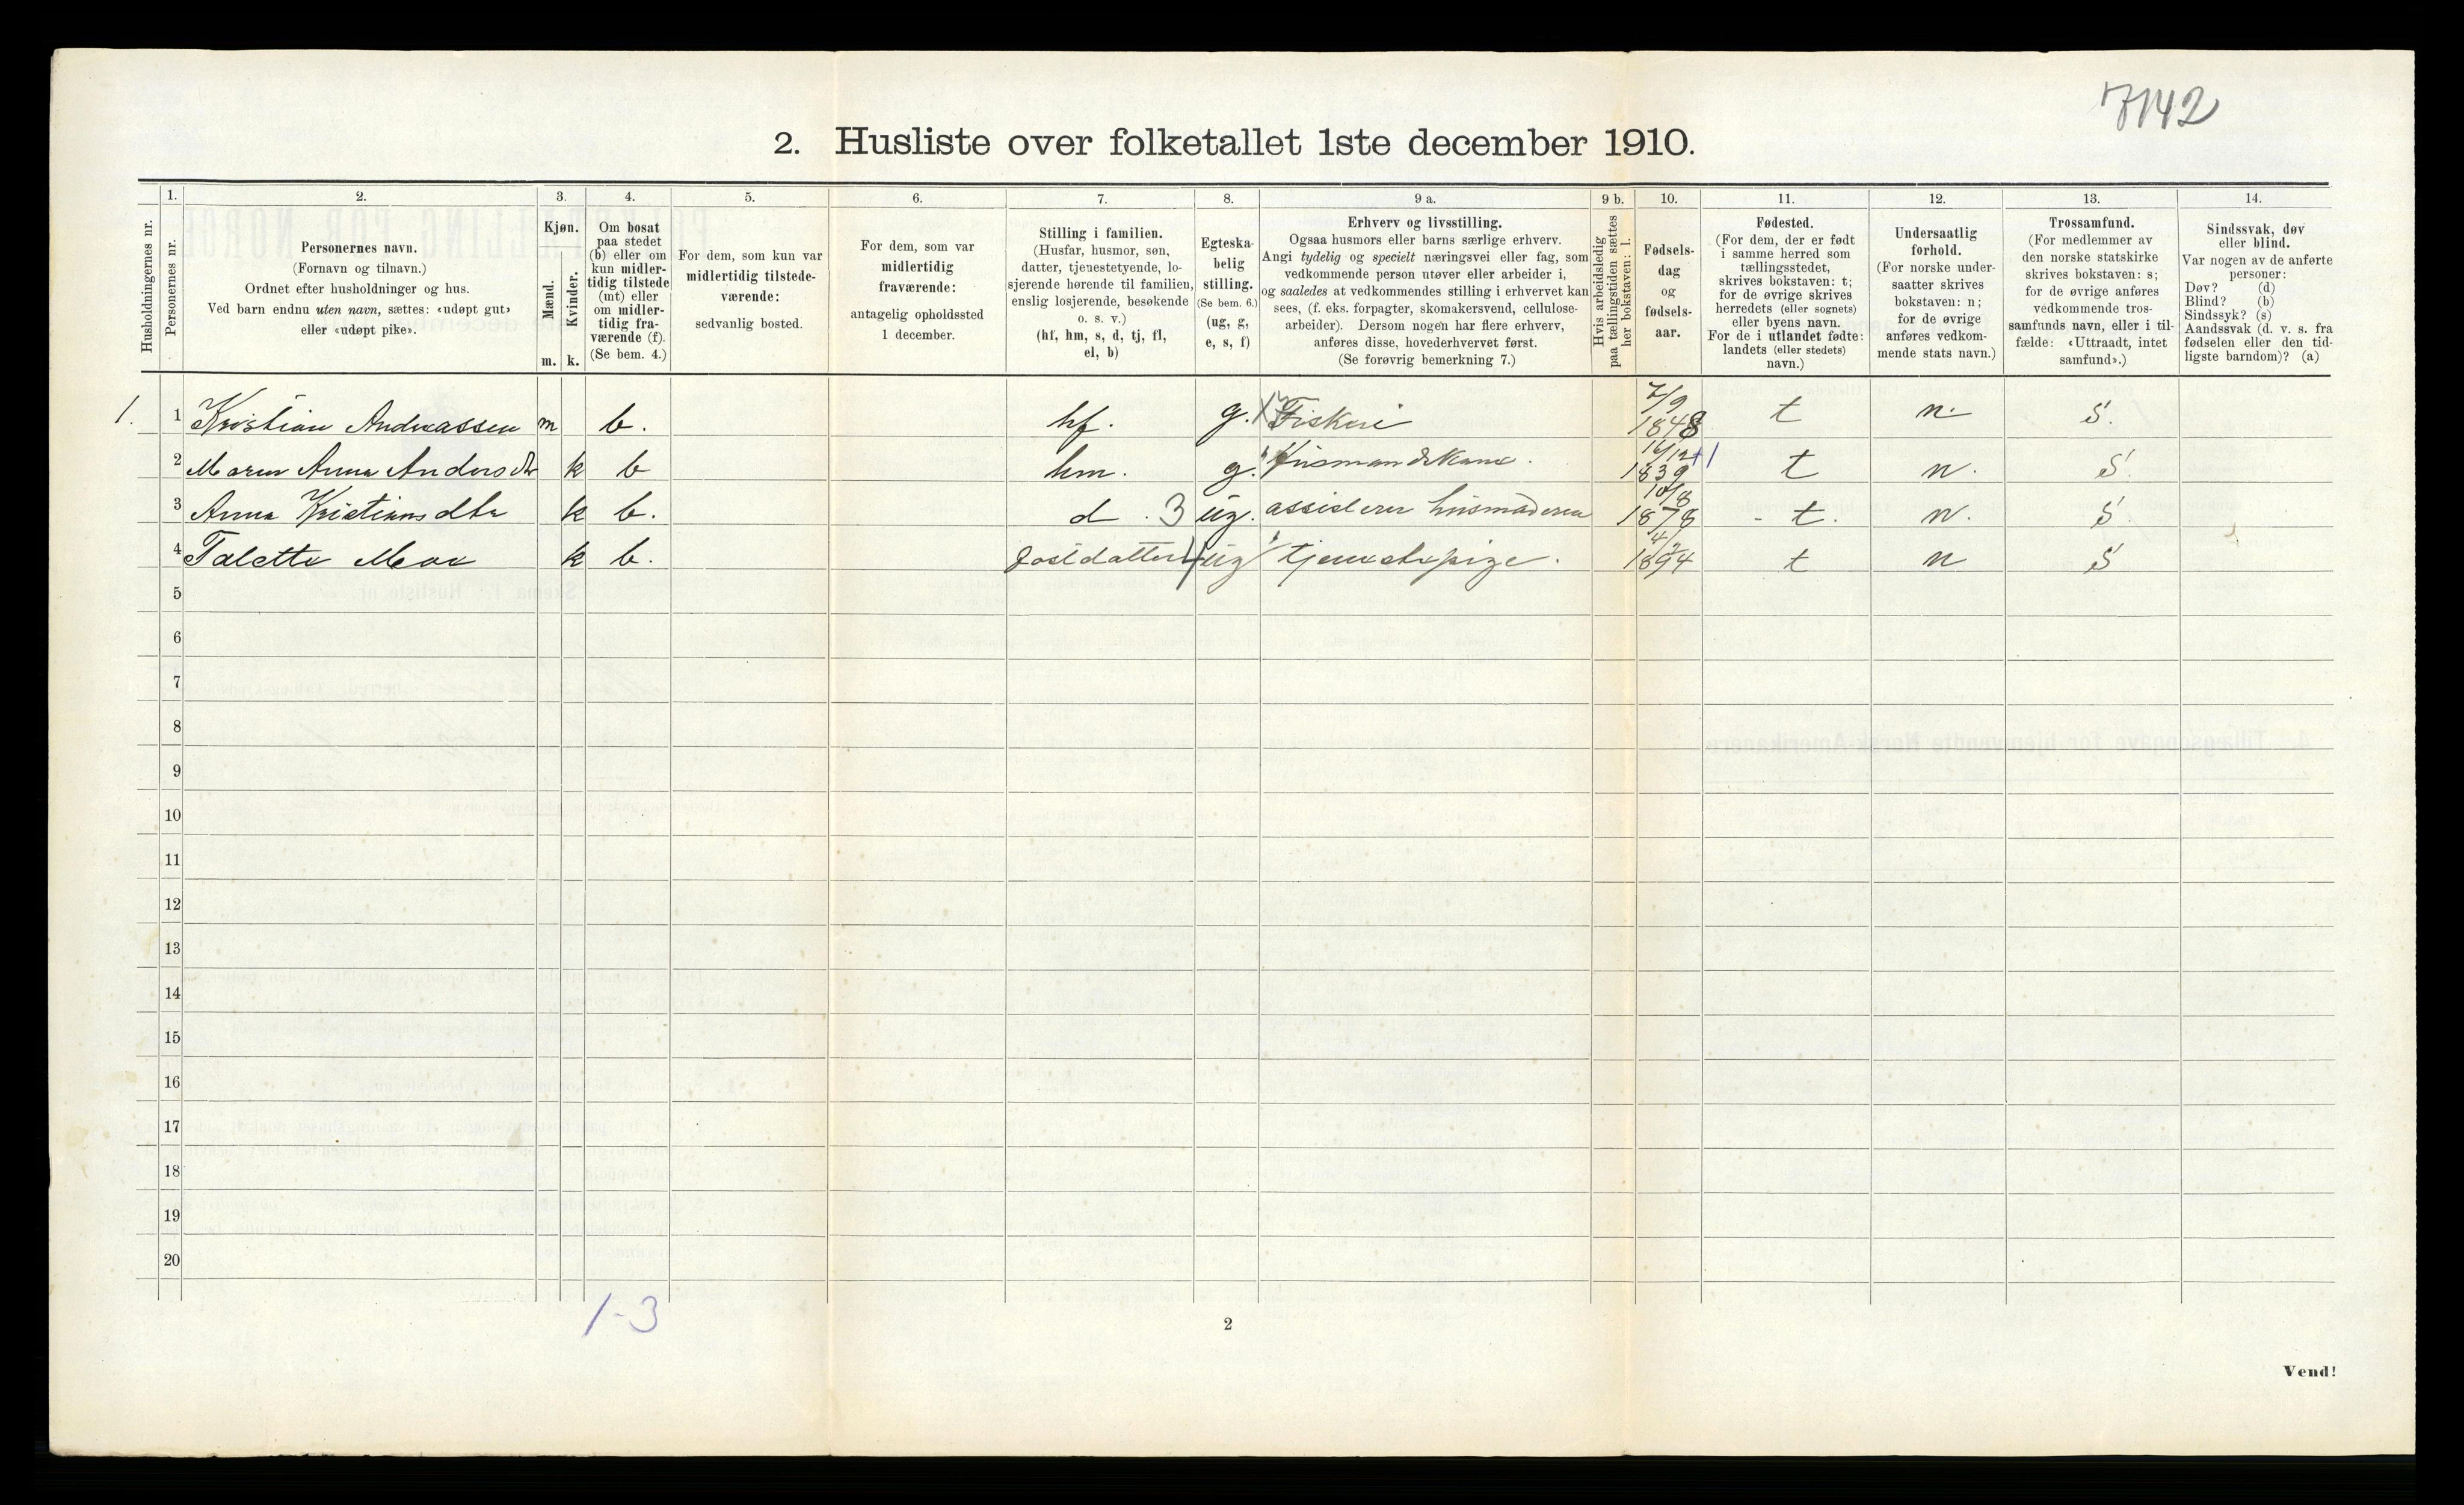 7142
2. Husliste over folketallet 1ste december 1910.
Husholdningernes nr.
1.
Personernes nr.
2.
Personernes navn.
(Fornavn og tilnavn.)
Ordnet efter husholdninger og hus.
Ved barn endnu uten navn, sættes: «udøpt gut»
eller «udøpt pike».
3.
Kjøn.
Mænd.
Kvinder.
m. k.
4.
Om bosat
paa stedet
(b) eller om
kun midler-
tidig tilstede
(mt) eller
om midler-
tidig fra-
værende (f).
(Se bem. 4.)
5.
For dem, som kun var
midlertidig tilstede-
værende:
sedvanlig bosted.
6.
For dem, som var
midlertidig
fraværende:
antagelig opholdssted
1 december.
7.
Stilling i familien.
(Husfar, husmor, søn,
datter, tjenestetyende, lo-
sjerende hørende til familien,
enslig losjerende, besøkende
o. s. v.)
(hf, hm, s, d, tj, fl,
el, b)
8.
Egteska-
belig
stilling.
(Se bem. 6.)
(ug, g,
e, s, f)
9 a.
Erhverv og livsstilling.
Ogsaa husmors eller barns særlige erhverv.
Angi tydelig og specielt næringsvei eller fag, som
vedkommende person utøver eller arbeider i,
og saaledes at vedkommendes stilling i erhvervet kan
sees, (f. eks. forpagter, skomakersvend, cellulose-
arbeider). Dersom nogen har flere erhverv,
anføres disse, hovederhvervet først.
(Se forøvrig bemerkning 7.)
9 b.
Hvis arbeidsledig
paa tællingstiden sættes
her bokstaven: l.
10.
Fødsels-
dag
og
fødsels-
aar.
11.
Fødested.
(For dem, der er født
i samme herred som
tællingsstedet,
skrives bokstaven: t;
for de øvrige skrives
herredets (eller sognets)
eller byens navn.
For de i utlandet fødte:
landets (eller stedets)
navn.)
12.
Undersaatlig
forhold.
(For norske under-
saatter skrives
bokstaven: n;
for de øvrige
anføres vedkom-
mende stats navn.)
13.
Trossamfund.
(For medlemmer av
den norske statskirke
skrives bokstaven: s;
for de øvrige anføres
vedkommende tros-
samfunds navn, eller i til-
fælde: «Uttraadt, intet
samfund».)
14.
Sindssvak, døv
eller blind.
Var nogen av de anførte
personer:
Døv? (d)
Blind? (b)
Sindssyk? (s)
Aandssvak (d. v. s. fra
fødselen eller den tid-
ligste barndom)? (a)
1. 1 Kristian Andreassen m b. hf. g. Fiskeri 7/9 1848 t n. S.
2 Maren Anna Andersdtr k b hm. g. Husmandskone. 16/12 1839 t n. S.
3 Anna Kristiansdtr k b. d. 3 ug. assisterer husmoderen 10/8 1878 t. n. S.
4 Talette Moe k b. Postdatter ug tjenestepige. 1894 t n S
5
6
7
8
9
10
11
12
13
14
15
16
17
18
19
20
1-3
2
Vend!